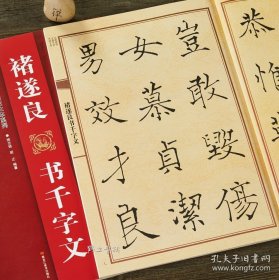 褚遂良
书千字文
褚遂良书千字文
恭
豈敢毀傷
女慕貞潔
男效才良
孔夫子旧书网